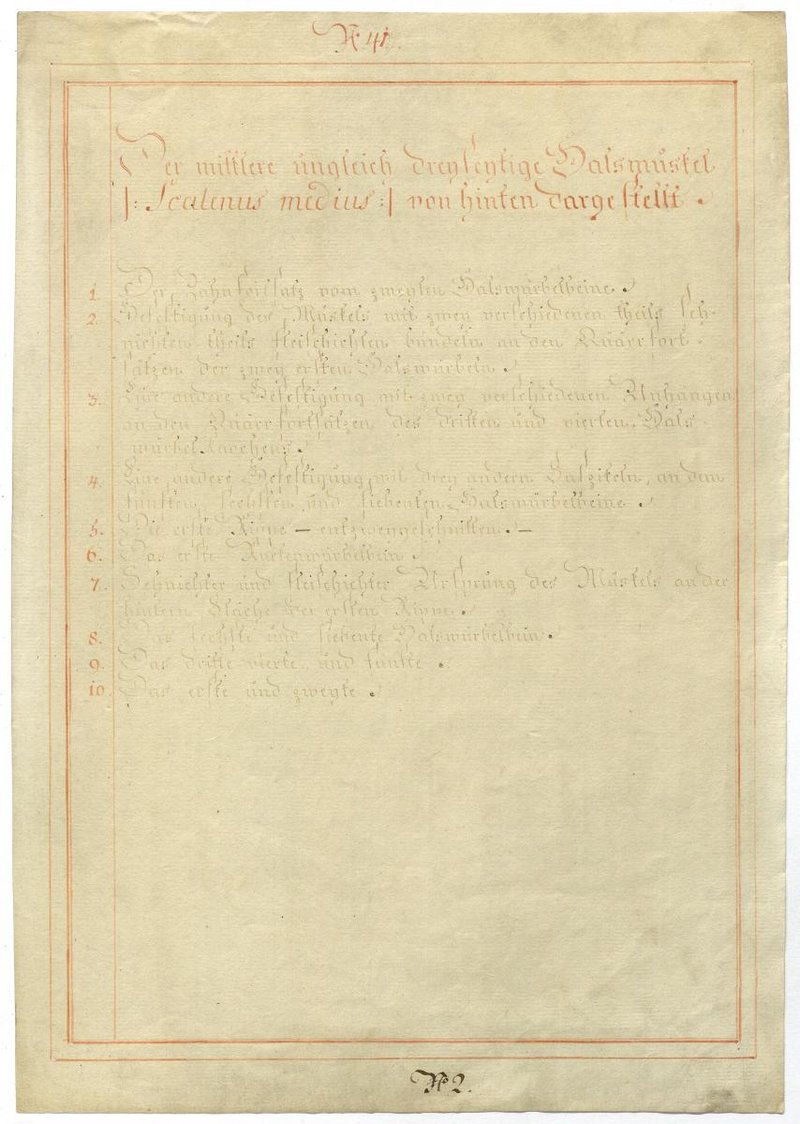 No 41.
Der mittlere ungleich dreyseytige Halsmuskel
|: Scalenus medius :| von hinten dargestellt.
1. Der Zahnfortsatz vom zweyten Halswürbelbeine.
2. Befestigung des Muskels mit zwey verschiedenen theils seh-
nichten theils fleischichten bündeln an den Quäerfort-
sätzen der zwey ersten Halswürbeln.
3. Eine andere Befestigung mit zwey verschiedenen Anhängen
an den Quäerfortsätzen des dritten und vierten Hals-
würbelknochens.
4. Eine andere Befestigung mit drey andern an dem
fünften, sechsten und siebenten Halswürbelbeine.
5. Die erste Rippe — entzweygeschnitten. —
6. Das erste Rückenwürbelbein.
7. Sehnichter und fleischichter Ursprung des Muskels an der
hintern Fläche der ersten Rippe.
8. Das sechste und siebente Halswürbelbein.
9. Das dritte vierte und fünfte.
10. Das erste und zweyte.
No 2.